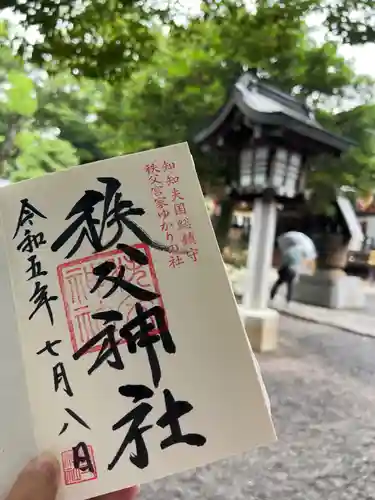 知知夫国総鎮守
秩父宮家ゆかりの社
秩父神社
令和五年七月八日